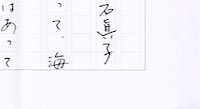 石眞子
って、海
はあって